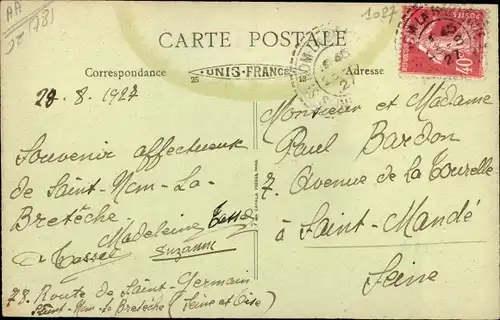 AA
(78)
1027
CARTE POSTALE
Correspondance
UNIS-FRANCE
Adresse
POSTES
40
29-8-1927
Souvenir affectueux
de Saint-Nom-La-
Bretêche.
Madeleine
Suzanne
78. Route de Saint-Germain
Saint-Nom-La Bretêche (Seine et Oise)
Monsieur et Madame
Paul Bardon
7. Avenue de la Tourelle
à Saint-Mandé
Seine